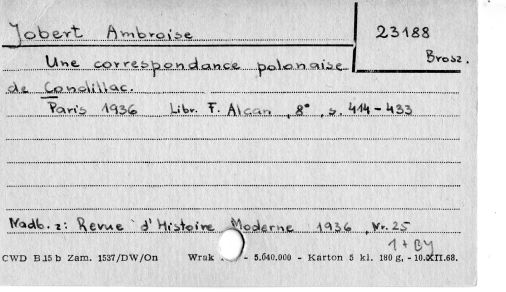 Jobert Ambroise
23188
Brosz.
Une correspondance polonaise
de Condillac.
Paris 1936 Libr. F. Alcan, 8°, s. 414-433
Nadb. z: Revue d'Histoire Moderne 1936, Nr. 25
1 + BY
CWD B.15 b Zam. 1537/DW/On Wrak - 5.040.000 - Karton 5 kl. 180 g, - 10.XII.68.